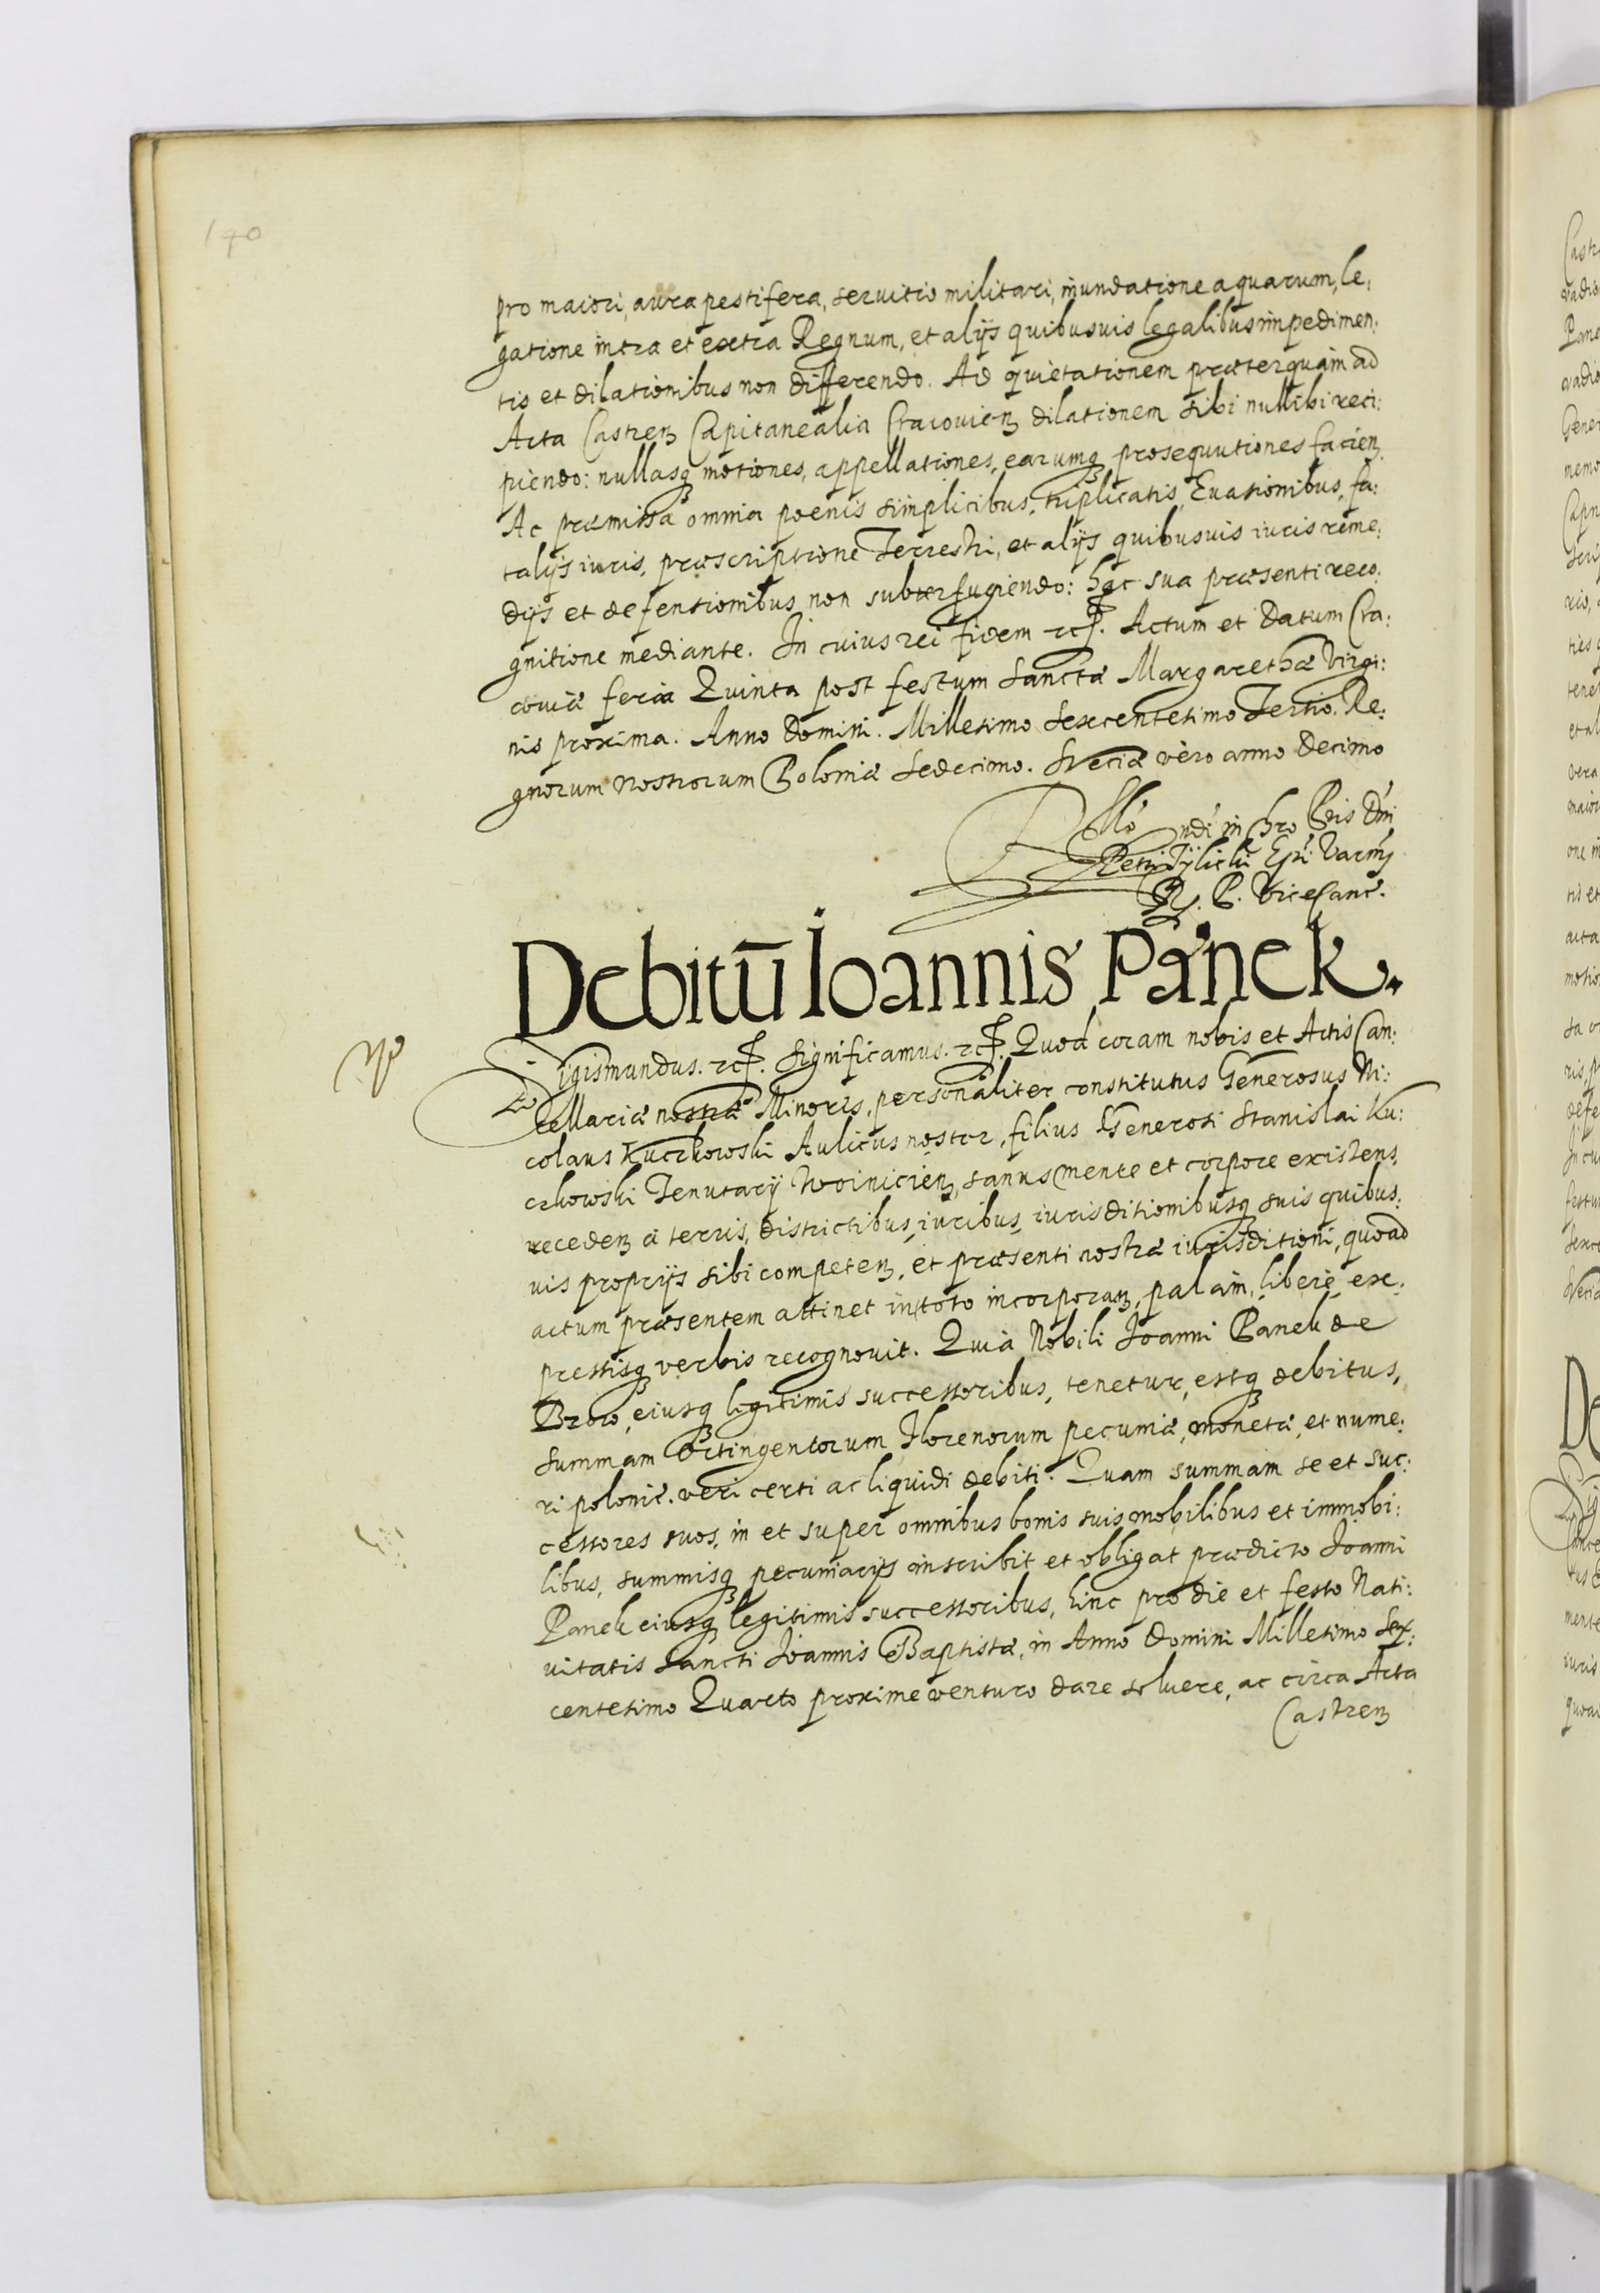 170
pro maiori, aura pestifera, seruitio militari, inundatione aquarum, le,
gatione intra et extra Regnum, et alijs quibusuis legalibus impedimen:
tis et dilationibus non differendo. Ad quietationem præterquam ad
Acta Castren Capitanealia Cracouien dilationem sibi nullibi reci:
piendo: nullasq motiones, appellationes, earumq prosequutiones facien.
Ac præmissa omnia poenis simplicibus, triplicatis, Euasionibus, fa:
talijs iuris, præscriptione Terrestri, et alijs quibusuis iuris reme:
dijs et defensionibus non subterfugiendo: hac sua præsenti reco:
gnitione mediante. In cuius rei fidem etc. Actum et Datum Cra:
couiæ feria Quinta post festum Sanctæ Margarethæ Virgi:
nis proxima. Anno Domini. Millesimo Sexcentesimo Tertio. Re:
gnorum Nostrorum Poloniæ Sedecimo. Sveciæ vero anno Decimo
ndi in Chro Pris Dni
Petri Tylicki Epi Varm
R. P. Vicecanc.
Debitū Ioannis Panek.
Sigismundus. etc. Significamus. etc. Quod coram nobis et Actis Can:
cellariæ nostræ Minoris, personaliter constitutus Generosus Ni:
colaus Kuczkowski Aulicus noster, filius Generosi Stanislai Ku:
czkowski Tenutarij Woinicien, sanus mente et corpore existens,
receden a terris, districtibus, iuribus, iurisditionibusq suis quibus:
uis proprijs sibi competen, et præsenti nostræ iurisditioni, quoad
actum præsentem attinet in toto incorporan, palam, libere, ex:
pressisq verbis recognouit. Quia Nobili Joanni Panek de
Brow, eiusq legitimis successoribus, tenetur, estq debitus,
summam Octingentorum Florenorum pecuniæ, monetæ, et nume:
ri polonic. veri certi ac liquidi debiti. Quam summam se et suc:
cessores suos, in et super omnibus bonis suis mobilibus et immobi:
libus, summisq pecuniarijs inscribit et obligat prædicto Joanni
Panek eiusq legitimis successoribus, hinc pro die et festo Nati:
uitatis Sancti Joannis Baptistæ, in Anno Domini Millesimo Sex:
centesimo Quarto proxime venturo dare soluere, ac circa Acta
Castren